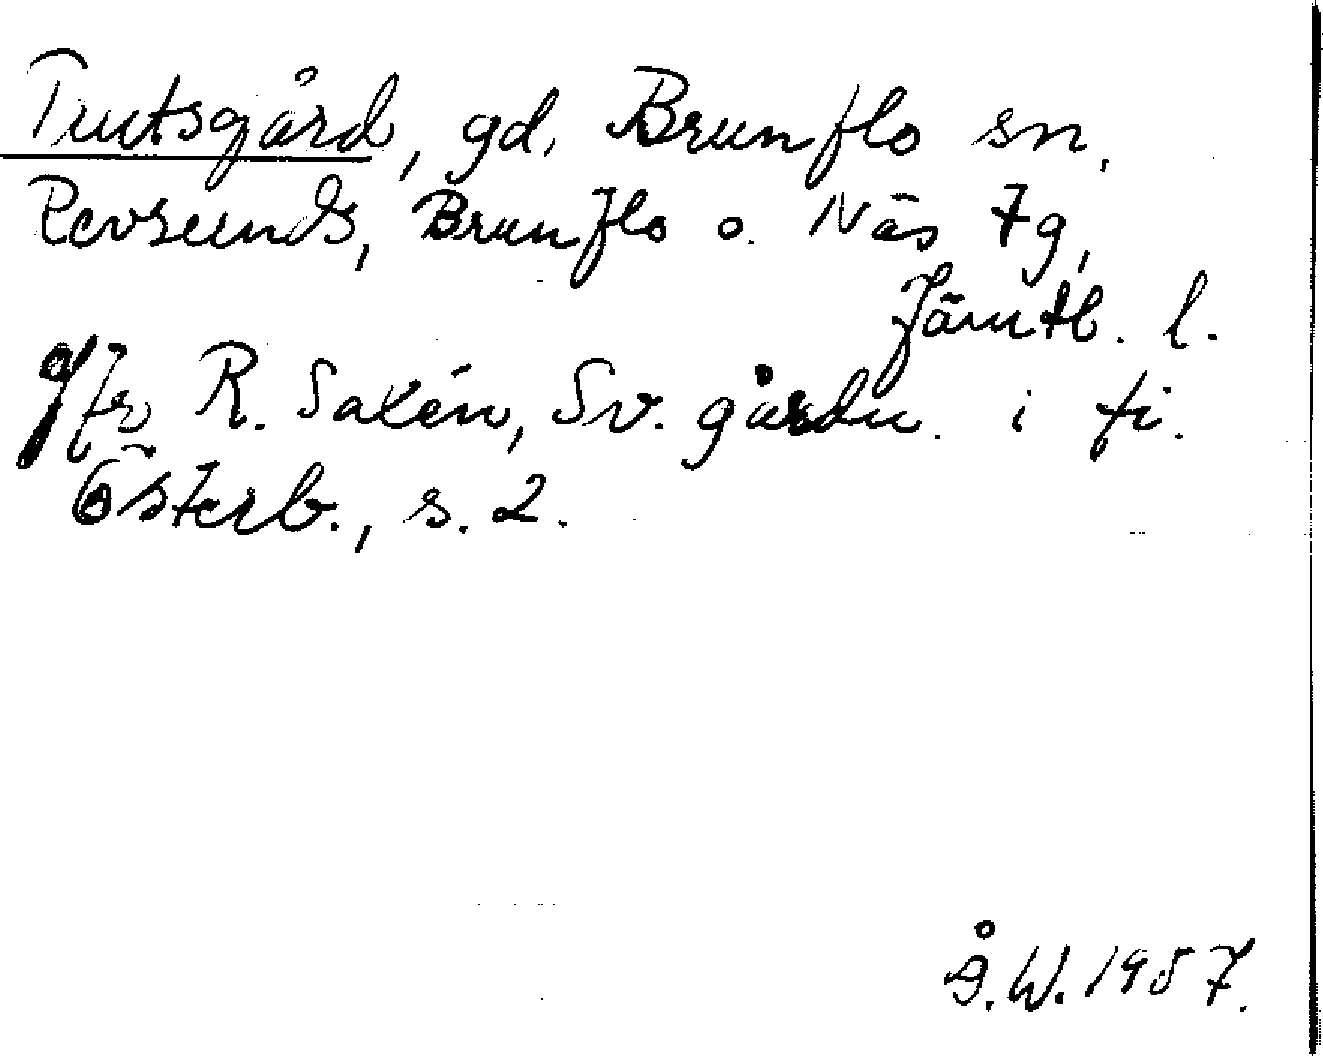 Trutsgård, gd, Brunflo sn.
Revsunds, Brunflo o. Näs tg,
Jämtl. l.
Jfr R. Saxén, Sv. gårdn. i fi.
Österb., s. 2.
Å.W. 1957.